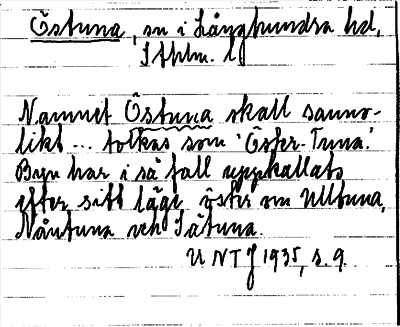 Östuna, sn i Långhundra hd,
Sthlm. l
Namnet Östuna skall sanno-
likt ... tolkas som 'Öster-Tuna'.
Byn har i så fall uppkallats
efter sitt läge öster om Ulltuna,
Nåntuna och Sätuna.
UNT J 1935, s. 9.